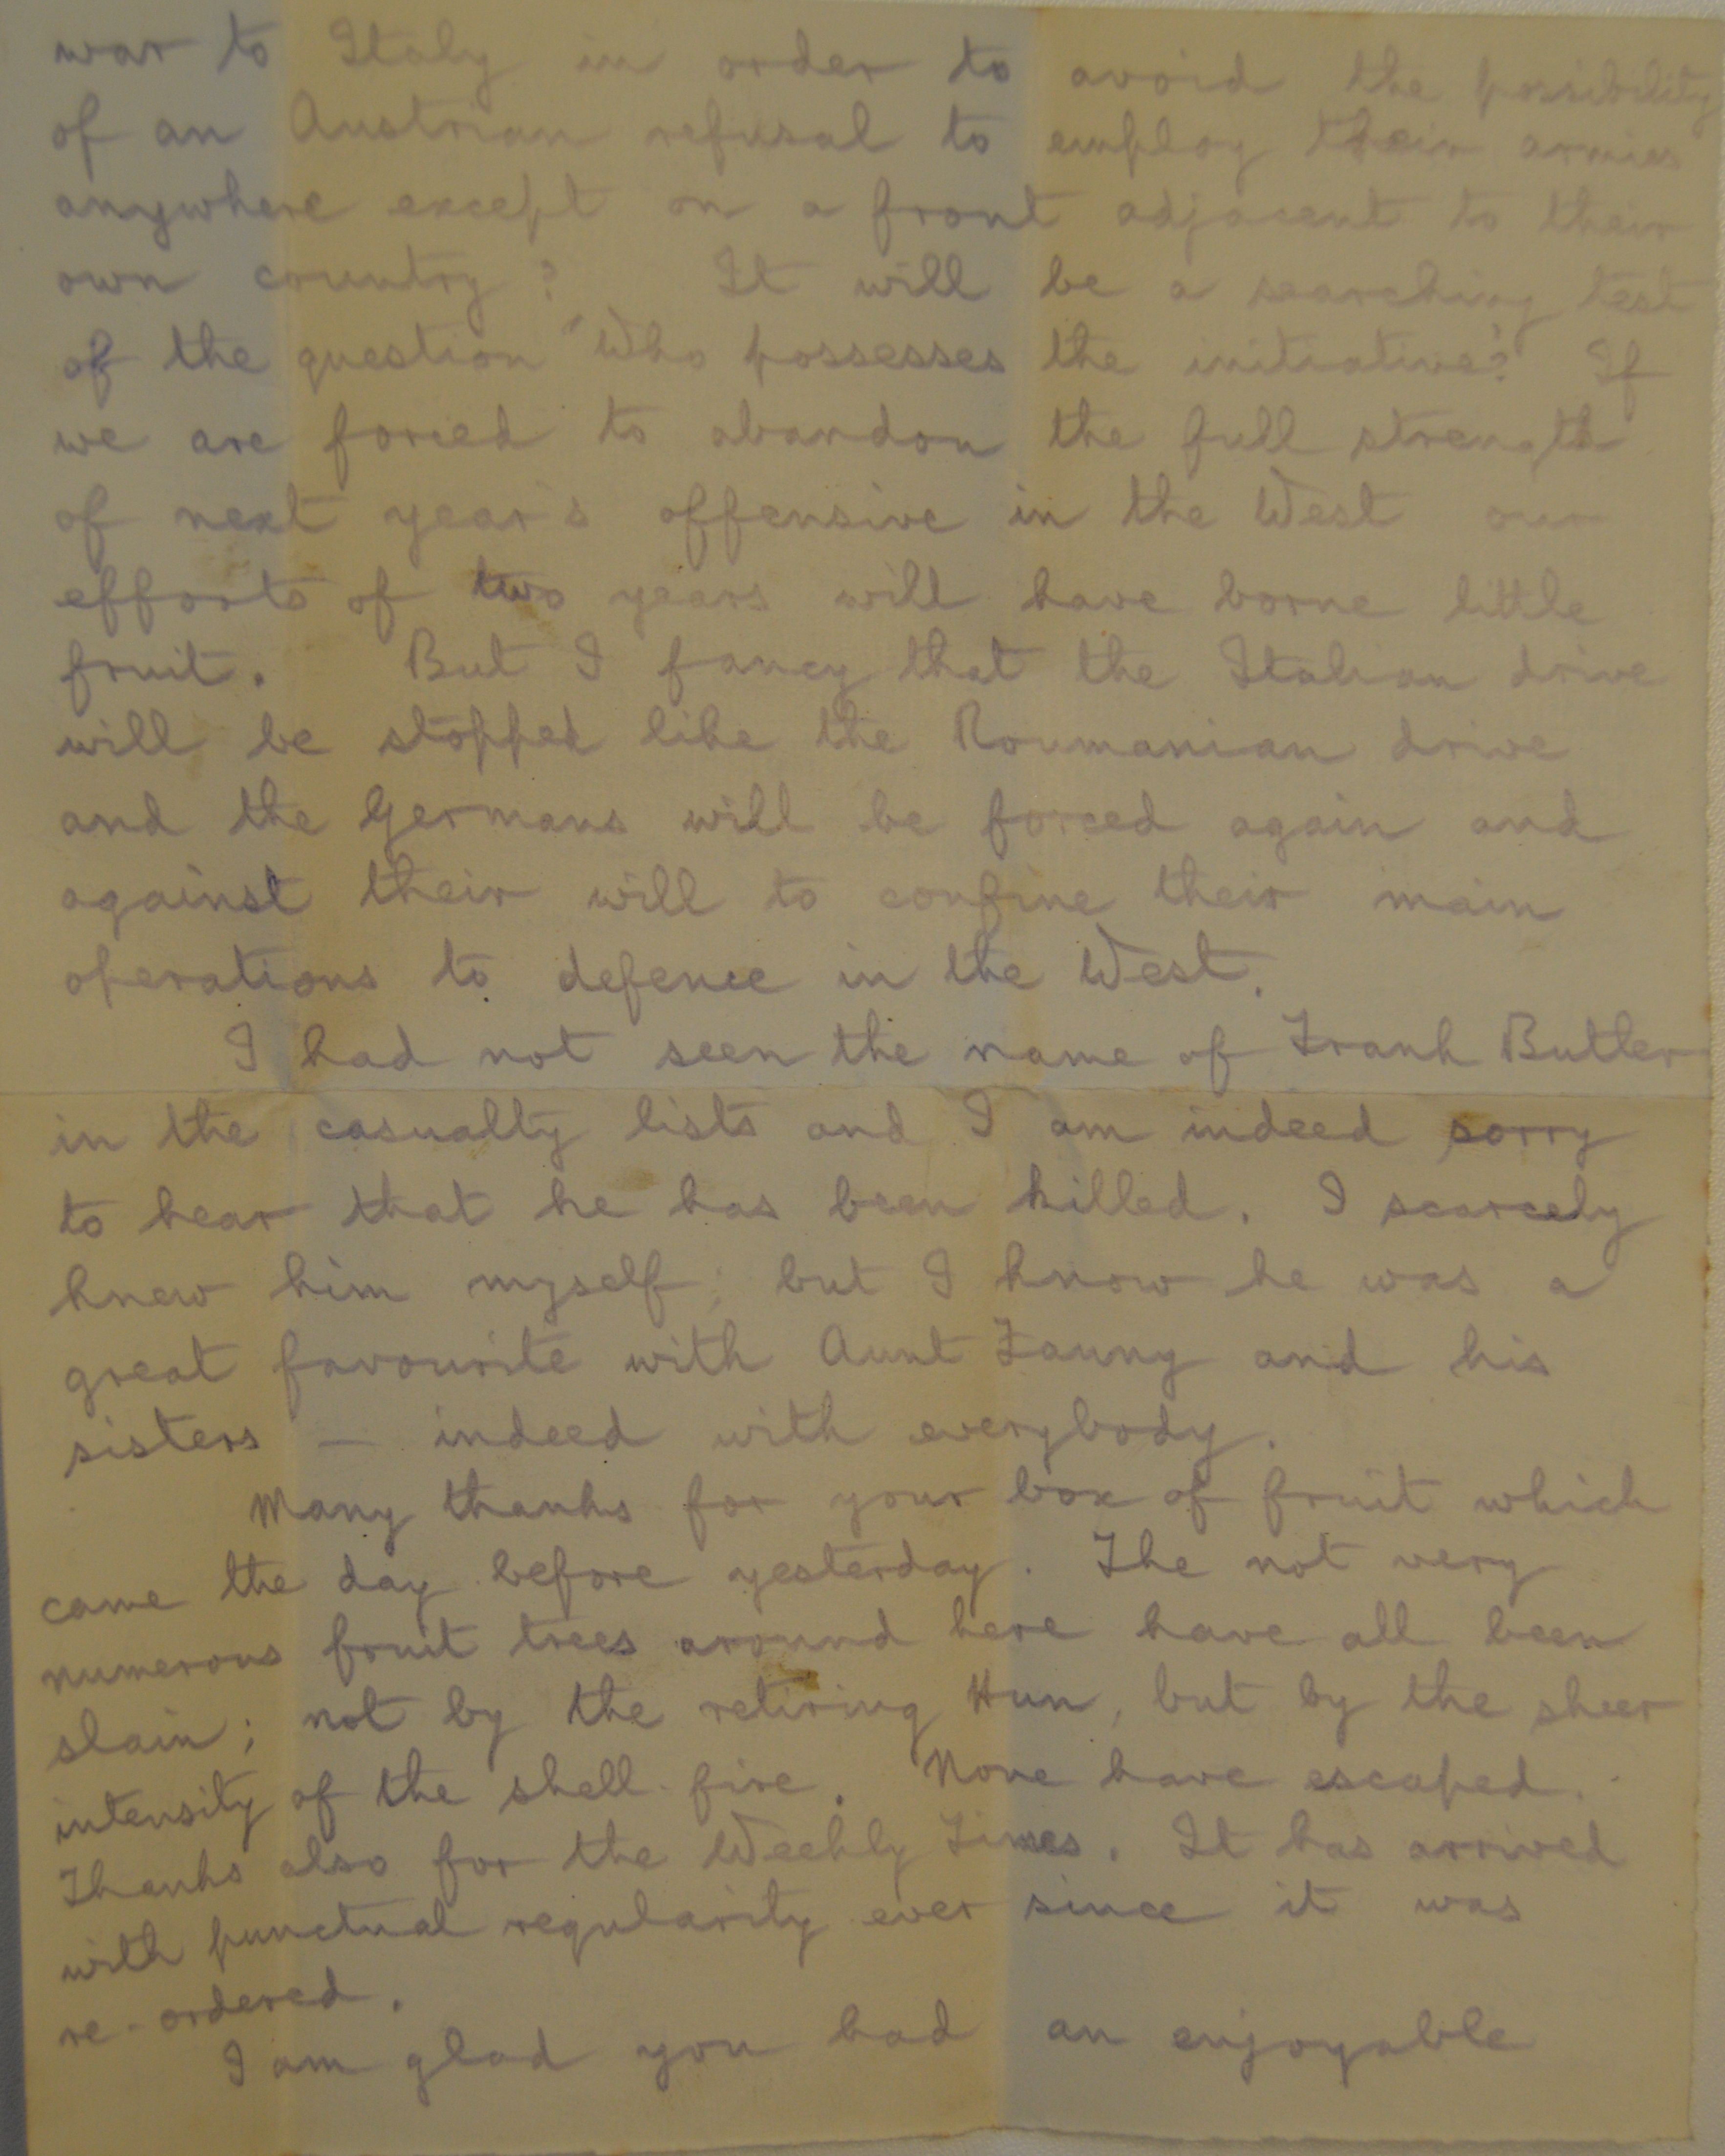 war to Italy in order to avoid the possibility
of an Austrian refusal to employ their armies
anywhere except on a front adjacent to their
own country? It will be a searching test
of the question "Who possesses the initiative?" If
we are forced to abandon the full strength
of next year's offensive in the West our
efforts of two years will have borne little
fruit. But I fancy that the Italian drive
will be stopped like the Roumanian drive
and the Germans will be forced again and
against their will to confine their main
operations to defence in the West.
I had not seen the name of Frank Butler
in the casualty lists and I am indeed sorry
to hear that he has been killed. I scarcely
knew him myself; but I know he was a
great favourite with Aunt Fanny and his
sisters — indeed with everybody.
Many thanks for your box of fruit which
came the day before yesterday. The not very
numerous fruit trees around here have all been
slain; not by the retiring Hun, but by the sheer
intensity of the shell-fire. None have escaped.
Thanks also for the Weekly Times. It has arrived
with punctual regularity ever since it was
re-ordered.
I am glad you had an enjoyable